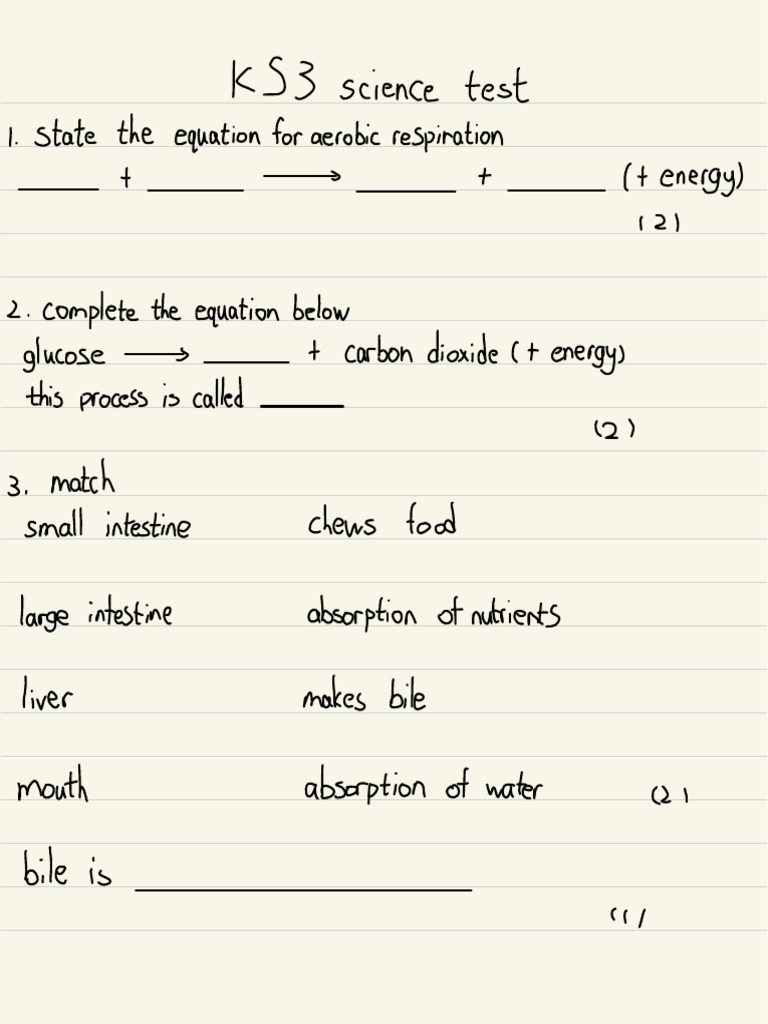 KS3 science test
1. State the equation for aerobic respiration
____ + ____ ⟶ ____ + ____ (+ energy)
(2)
2. complete the equation below
glucose ⟶ ____ + carbon dioxide (+ energy)
this process is called ____
(2)
3. match
small intestine chews food
large intestine absorption of nutrients
liver makes bile
mouth absorption of water (2)
bile is ____
(1)